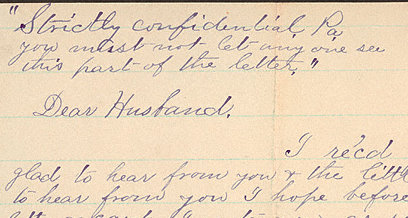 "Strictly confidential Pa
you must not let any one see
this part of the letter."
Dear Husband.
I rec'd
glad to hear from you & the
to hear from you I hope before